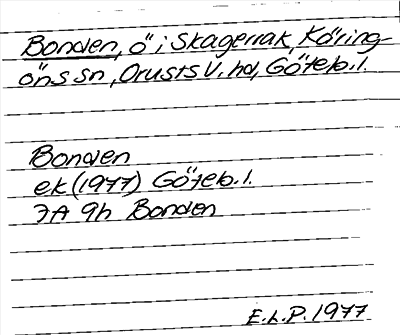 Bonden, ö i Skagerrak, Käring-
öns sn, Orusts V. hd, Göteb. l.
Bonden
ek (1977) Göteb. l.
7A 9h Bonden
E.L.P. 1977